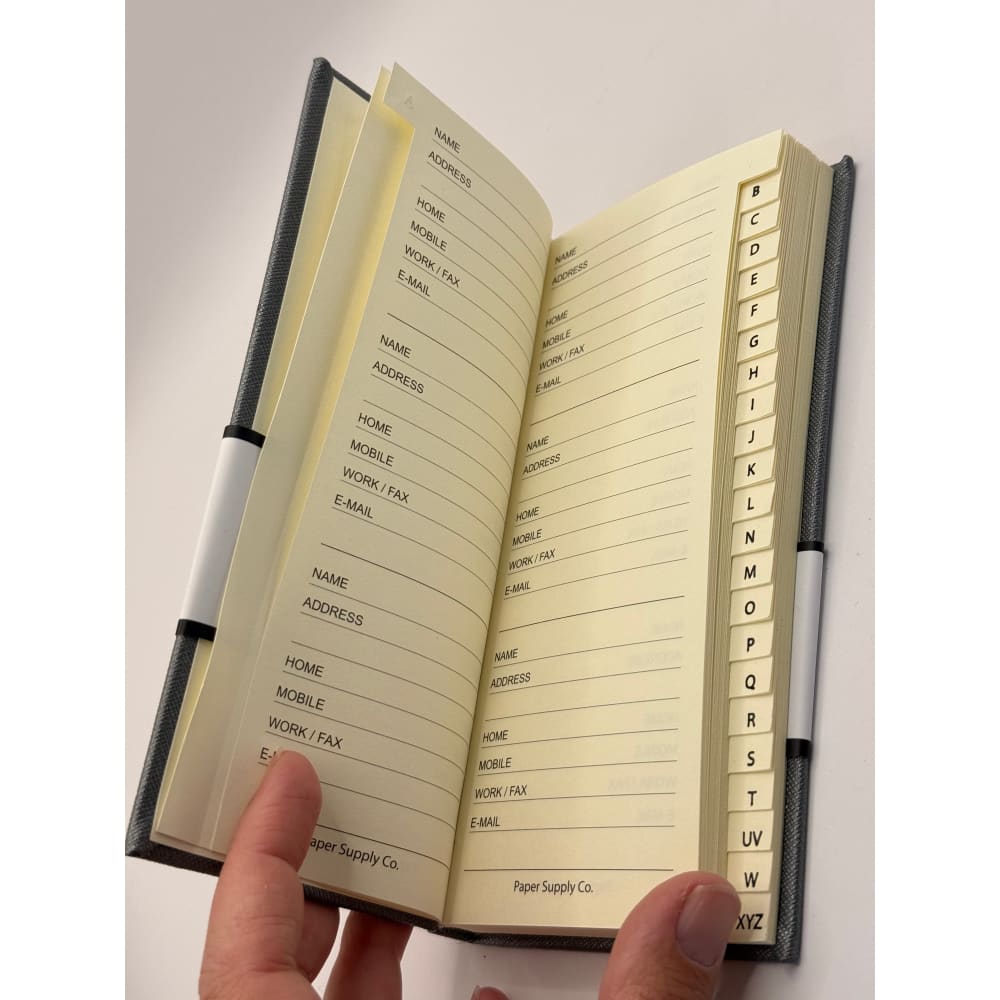 A
NAME
ADDRESS
HOME
MOBILE
WORK / FAX
E-MAIL
NAME
ADDRESS
HOME
MOBILE
WORK / FAX
E-MAIL
NAME
ADDRESS
HOME
MOBILE
WORK / FAX
Supply Co.
NAME
ADDRESS
HOME
MOBILE
WORK / FAX
E-MAIL
NAME
ADDRESS
HOME
MOBILE
WORK / FAX
E-MAIL
NAME
ADDRESS
HOME
MOBILE
WORK / FAX
E-MAIL
Paper Supply Co.
B
C
D
E
F
G
H
I
J
K
L
N
M
O
P
Q
R
S
T
UV
W
XYZ